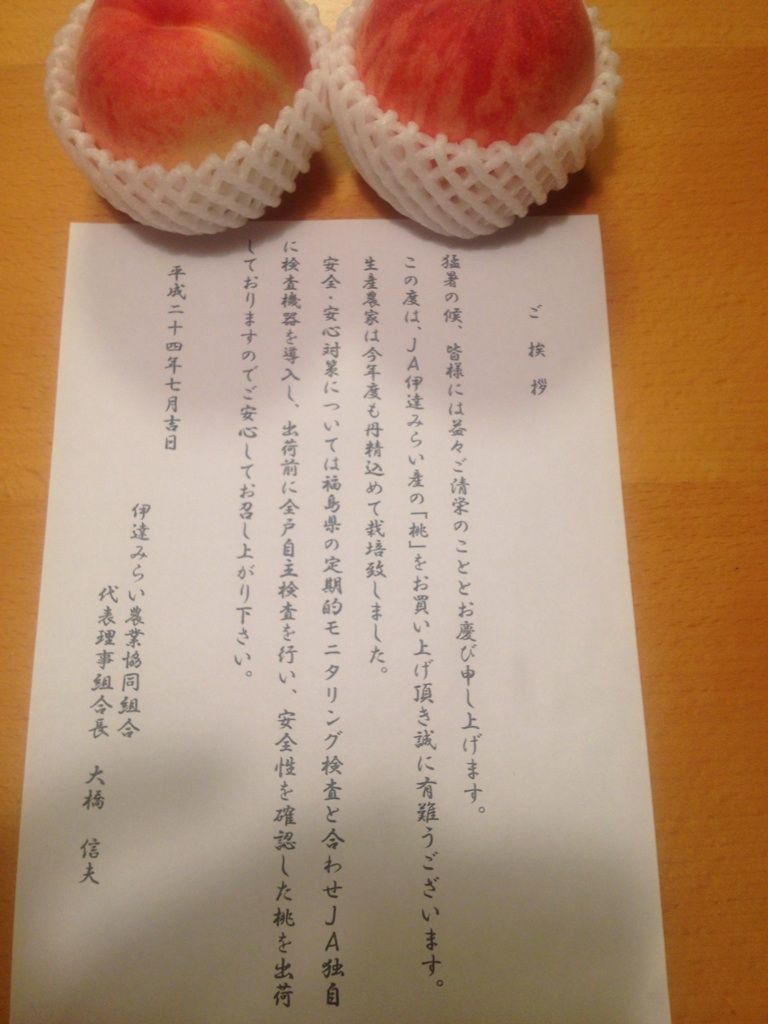 ご挨拶
猛暑の候、皆様には益々ご清栄のこととお慶び申し上げます。
この度は、ＪＡ伊達みらい産の「桃」をお買い上げ頂き誠に有難うございます。
生産農家は今年度も丹精込めて栽培致しました。
安全・安心対策については福島県の定期的モニタリング検査と合わせＪＡ独自
に検査機器を導入し、出荷前に全戸自主検査を行い、安全性を確認した桃を出荷
しておりますのでご安心してお召し上がり下さい。
平成二十四年七月吉日
伊達みらい農業協同組合
代表理事組合長　大橋　信夫